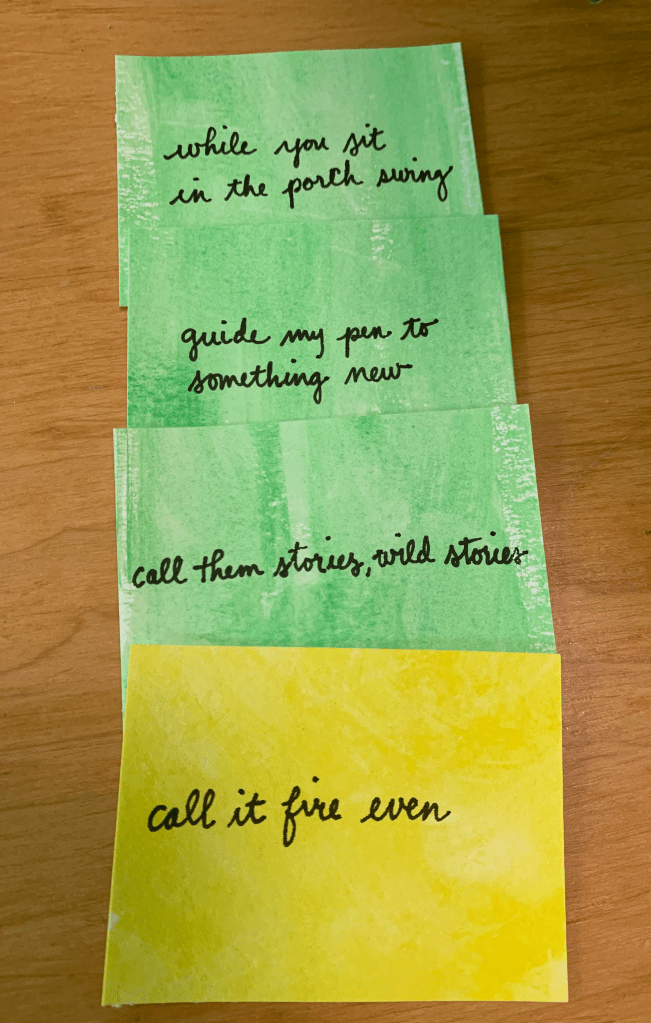 while you sit
in the porch swing
guide my pen to
something new
call them stories, wild stories
call it fire even